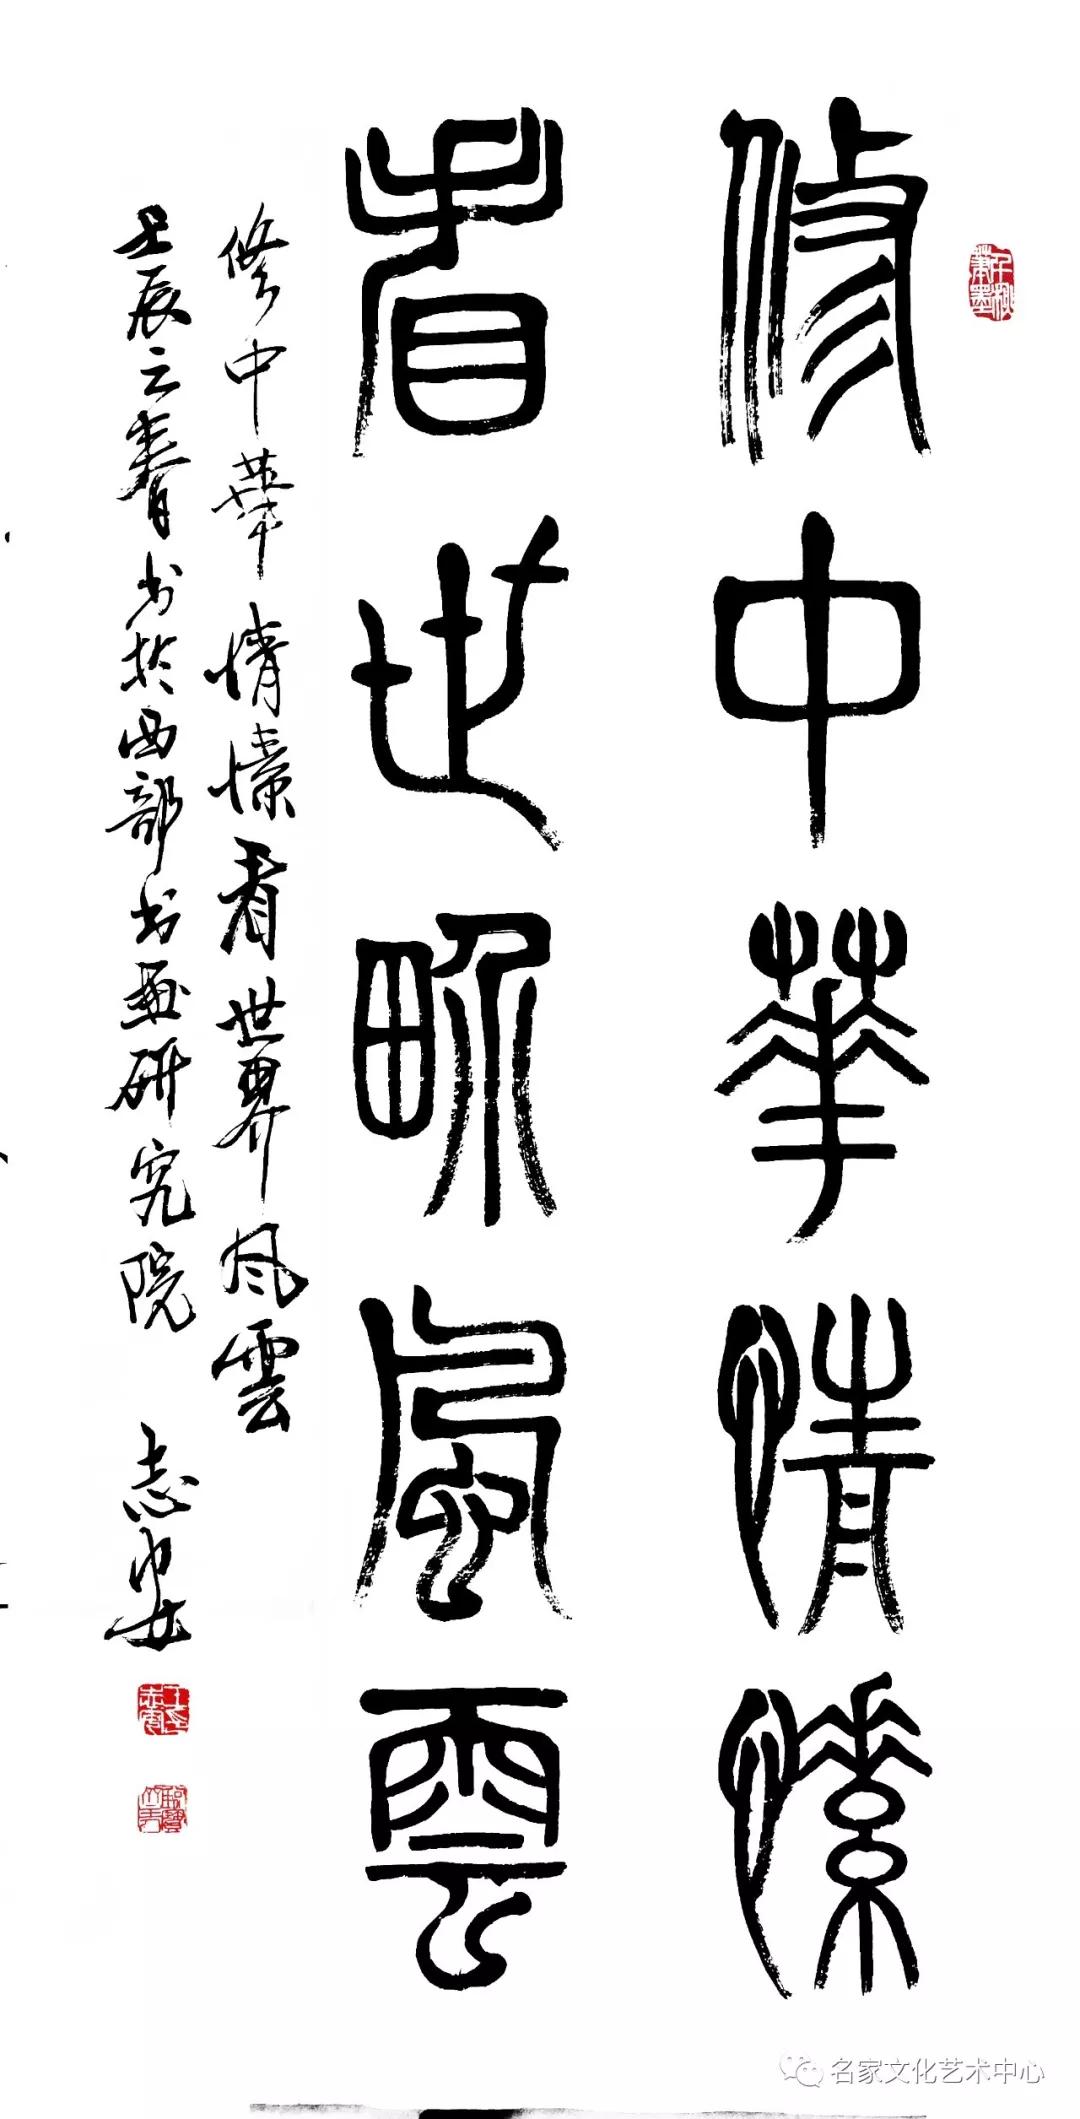 修中華情愫
看世界風雲
修中華情愫看世界风雲
壬辰之春书於西部书画研究院 志安
名家文化艺术中心